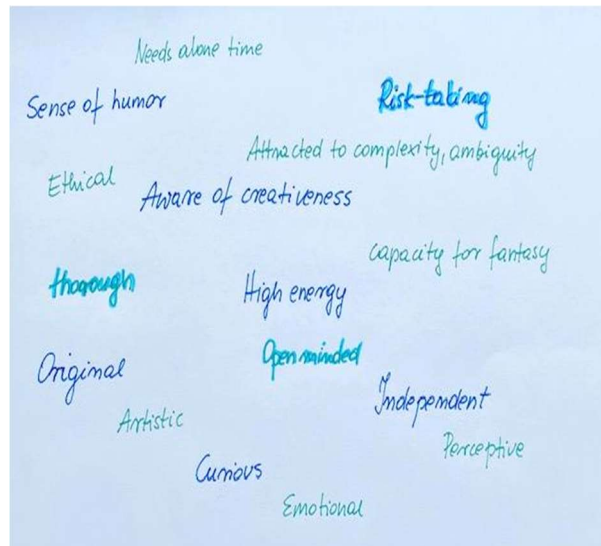 Needs alone time
Sense of humor
Risk-taking
Attracted to complexity, ambiguity
Ethical
Aware of creativeness
capacity for fantasy
thorough
High energy
Open minded
Original
Independent
Artistic
Perceptive
Curious
Emotional